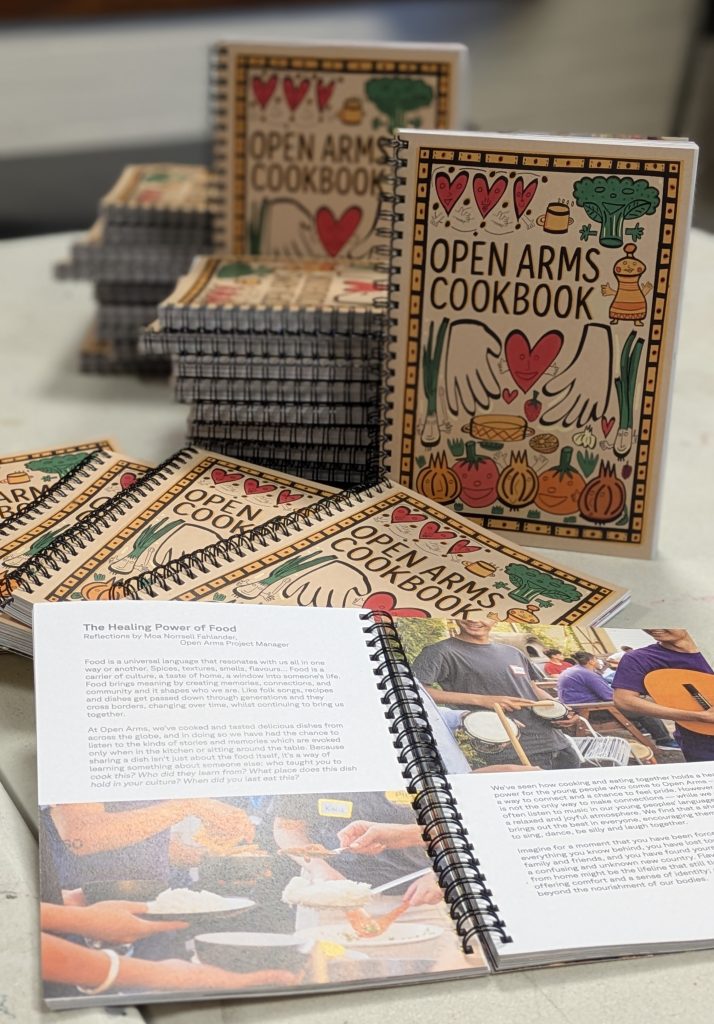 OPEN ARMS
COOKBOOK
OPEN ARMS
COOKBOOK
OPEN
COOK
OPEN ARMS
COOKBOOK
The Healing Power of Food
Reflections by Moa Norrsell Fahlander,
Open Arms Project Manager
Food is a universal language that resonates with us all in one
way or another. Spices, textures, smells, flavours... Food is a
carrier of culture, a taste of home, a window into someone's life.
Food brings meaning by creating memories, connections, and
community and it shapes who we are. Like folk songs, recipes
and dishes get passed down through generations and they
cross borders, changing over time, whilst continuing to bring us
together.
At Open Arms, we've cooked and tasted delicious dishes from
across the globe, and in doing so we have had the chance to
listen to the kinds of stories and memories which are evoked
only when in the kitchen or sitting around the table. Because
sharing a dish isn't just about the food itself, it's a way of
learning something about someone else: who taught you to
cook this? Who did they learn from? What place does this dish
hold in your culture? When did you last eat this?
We've seen how cooking and eating together holds a
power for the young people who come to Open Arms –
a way to connect and a chance to feel pride. However
is not the only way to make connections – while we
often listen to music in our young peoples' language
a relaxed and joyful atmosphere. We find that a
brings out the best in everyone, encouraging them
to sing, dance, be silly and laugh together.
Imagine for a moment that you have been
everything you know behind, you have lost
family and friends, and you have found
a confusing and unknown new country.
from home might be the lifeline that still
offering comfort and a sense of identity;
beyond the nourishment of our bodies.